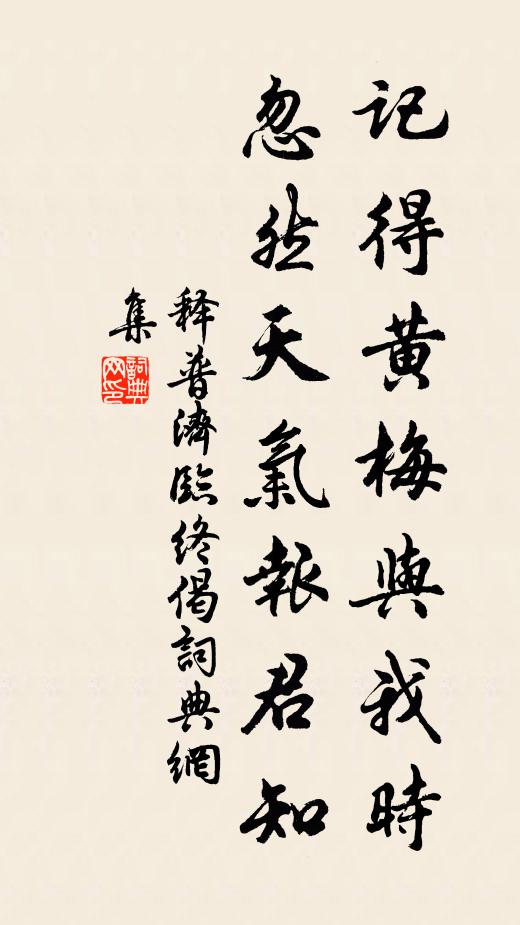 記得黄梅與我時
忽然天氣報君知
释普濟臨终偈詞典網
集
詞典网印